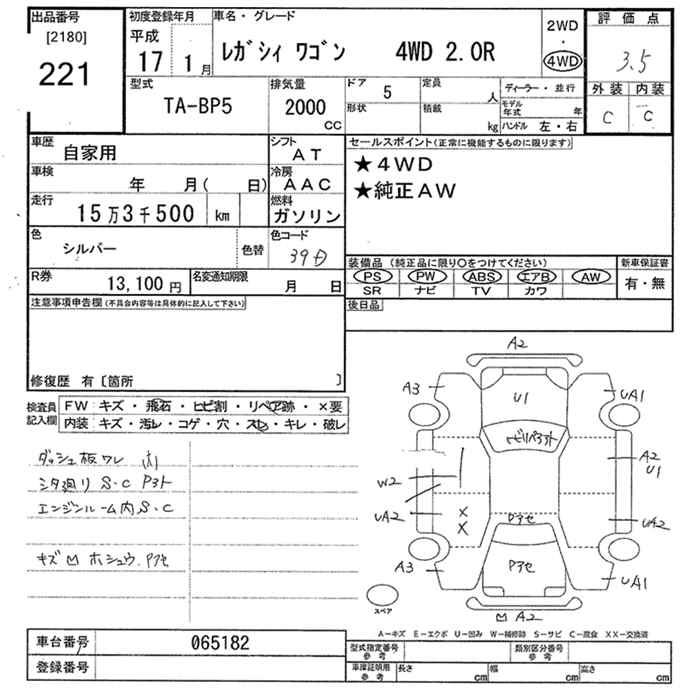 出品番号
[2180]
221
初度登録年月
平成
17 1月
車名・グレード
レガシィ ワゴン 4WD 2.0R
2WD
・
4WD
評価点
3.5
外装 内装
C C
型式
TA-BP5
排気量
2000
CC
ドア
5
形状
定員
人
積載
kg
ディーラー・並行
モデル年式 年
ハンドル 左・右
車歴
自家用
シフト
AT
車検
年 月( 日)
冷房
AAC
走行
15万3千500 km
燃料
ガソリン
色
シルバー
色替
色コード
39D
R券
13,100円
名変通知期限
月 日
セールスポイント(正常に機能するものに限ります)
★4WD
★純正AW
装備品(純正品に限り○をつけてください)
PS PW ABS エアB AW
SR ナビ TV カワ
新車保証書
有・無
後日品
注意事項申告欄(不具合内容等は具体的に記入して下さい)
修復歴 有〔箇所 〕
検査員
記入欄
FW キズ・飛石・ヒビ割・リペア跡・×要
内装 キズ・汚レ・コゲ・穴・スレ・キレ・破レ
ダッシュ板ワレ
シタ廻り S・C
エンジンルーム内 S・C
キズ 凹 ホシュウ
A2
A3
U1
UA1
A2
U1
W2
UA2
×
×
UA2
A3
UA1
凹A2
スペア
A-キズ E-エクボ U-凹み W-補修跡 S-サビ C-腐食 XX-交換済
車台番号
065182
登録番号
型式指定番号
参考
類別区分番号
参考
車庫証明用
参考
長さ cm 幅 cm 高さ cm